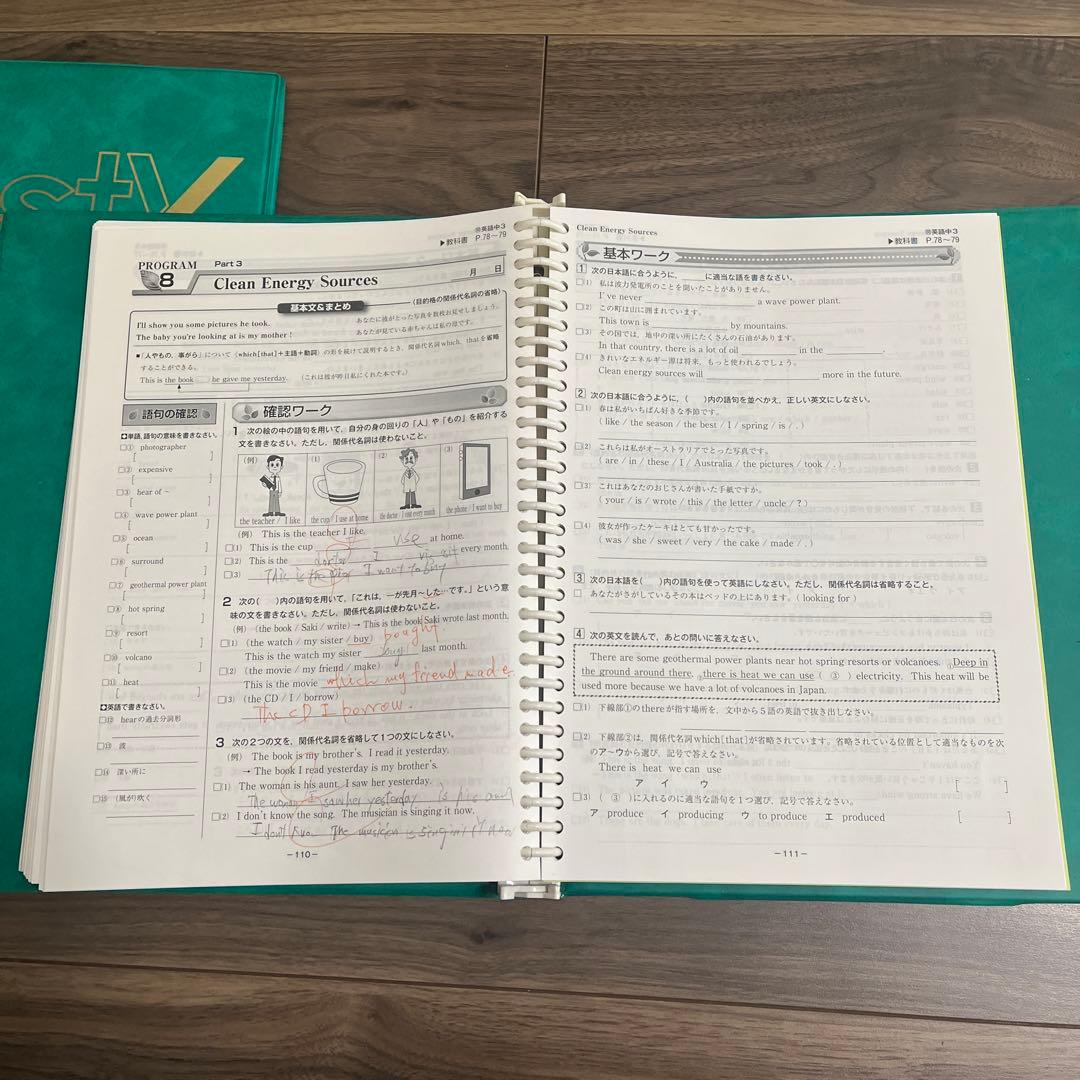 sty
⑱英語中3
▶教科書 P.78〜79
PROGRAM 8
Part 3
Clean Energy Sources
月 日
基本文&まとめ
(目的格の関係代名詞の省略)
I'll show you some pictures he took.
あなたに彼がとった写真を数枚お見せしましょう。
The baby you're looking at is my mother!
あなたが見ている赤ちゃんは私の母です。
■「人やもの、事がら」について〈which[that]+主語+動詞〉の形を続けて説明するとき、関係代名詞 which, that を省略
することができる。
This is the book he gave me yesterday. (これは彼が昨日私にくれた本です。)
語句の確認
単語、語句の意味を書きなさい。
□① photographer
[ ]
□② expensive
[ ]
□③ hear of ~
[ ]
□④ wave power plant
[ ]
□⑤ ocean
[ ]
□⑥ surround
[ ]
□⑦ geothermal power plant
[ ]
□⑧ hot spring
[ ]
□⑨ resort
[ ]
□⑩ volcano
[ ]
□⑪ heat
[ ]
英語で書きなさい。
□⑫ hearの過去分詞形
□⑬ 波
□⑭ 深い所に
□⑮ (風が)吹く
確認ワーク
1 次の絵の中の語句を用いて、自分の身の回りの「人」や「もの」を紹介する
文を書きなさい。ただし、関係代名詞は使わないこと。
(例) (1) (2) (3)
the teacher / I like
the cup / I use at home
the doctor / I visit every month
the phone / I want to buy
(例) This is the teacher I like.
□(1) This is the cup I use at home.
□(2) This is the doctor I visit every month.
□(3) This is the I want to buy
2 次の( )内の語句を用いて、「これは、―が先月〜した…です。」という意
味の文を書きなさい。ただし、関係代名詞は使わないこと。
(例) (the book / Saki / write) → This is the book Saki wrote last month.
□(1) (the watch / my sister / buy) bought
This is the watch my sister buy last month.
□(2) (the movie / my friend / make)
This is the movie which my friend made
□(3) (the CD / I / borrow)
The CD I borrow.
3 次の2つの文を、関係代名詞を省略して1つの文にしなさい。
(例) The book is my brother's. I read it yesterday.
→ The book I read yesterday is my brother's.
□(1) The woman is his aunt. I saw her yesterday.
The woman I saw her yesterday is his aunt
□(2) I don't know the song. The musician is singing it now.
I don't know The musician is singin it now
−110−
Clean Energy Sources
⑱英語中3
▶教科書 P.78〜79
基本ワーク
1 次の日本語に合うように、＿＿に適当な語を書きなさい。
□(1) 私は波力発電所のことを聞いたことがありません。
I've never ＿＿ a wave power plant.
□(2) この町は山に囲まれています。
This town is ＿＿ by mountains.
□(3) その国では、地中の深い所にたくさんの石油があります。
In that country, there is a lot of oil ＿＿ in the ＿＿.
□(4) きれいなエネルギー源は将来、もっと使われるでしょう。
Clean energy sources will ＿＿ more in the future.
2 次の日本語に合うように、( )内の語句を並べかえ、正しい英文にしなさい。
□(1) 春は私がいちばん好きな季節です。
( like / the season / the best / I / spring / is / . )
□(2) これらは私がオーストラリアでとった写真です。
( are / in / these / I / Australia / the pictures / took / . )
□(3) これはあなたのおじさんが書いた手紙ですか。
( your / is / wrote / this / the letter / uncle / ? )
□(4) 彼女が作ったケーキはとても甘かったです。
( was / she / sweet / very / the cake / made / . )
3 次の日本語を( )内の語句を使って英語にしなさい。ただし、関係代名詞は省略すること。
□ あなたがさがしているその本はベッドの上にあります。( looking for )
4 次の英文を読んで、あとの問いに答えなさい。
There are some geothermal power plants near hot spring resorts or volcanoes. ①Deep in
the ground around there, ②there is heat we can use ( ③ ) electricity. This heat will be
used more because we have a lot of volcanoes in Japan.
□(1) 下線部①のthereが指す場所を、文中から5語の英語で抜き出しなさい。
□(2) 下線部②は、関係代名詞which[that]が省略されています。省略されている位置として適当なものを次
のア〜ウから選び、記号で答えなさい。
There is heat we can use
ア イ ウ
[ ]
□(3) ( ③ )に入れるのに適当な語句を1つ選び、記号で答えなさい。
ア produce イ producing ウ to produce エ produced
[ ]
−111−